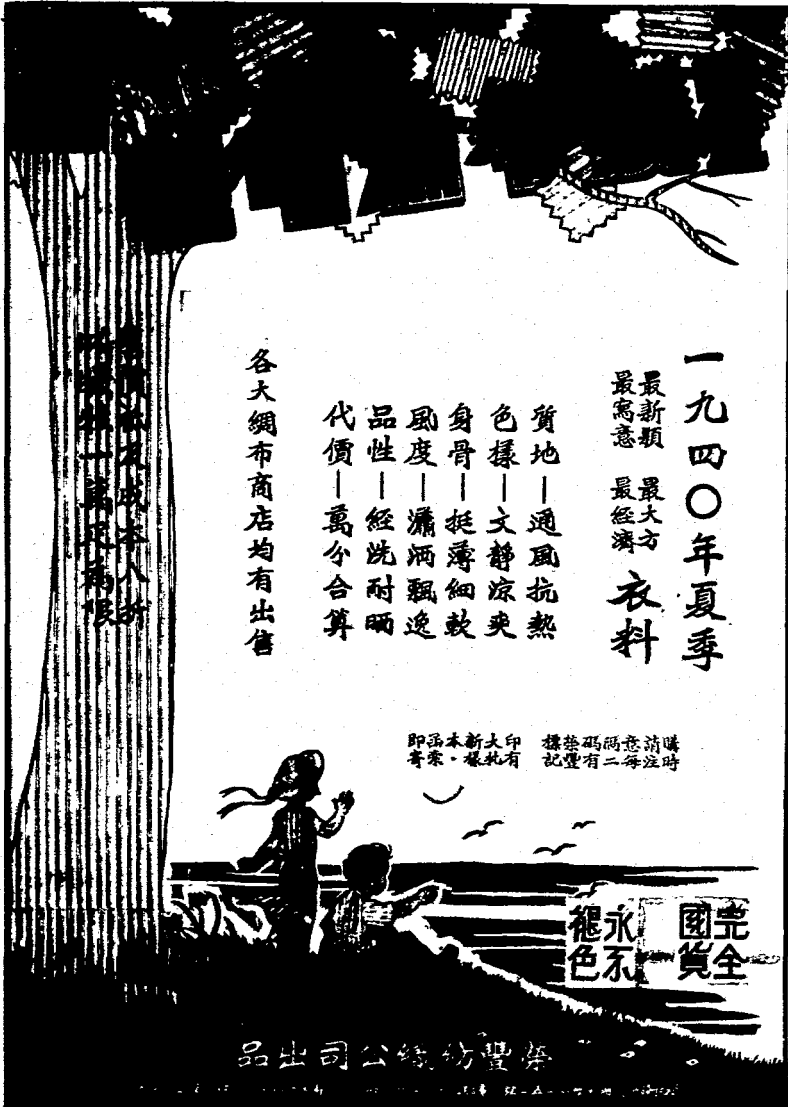 一九四〇年夏季
最新穎　最大方
最寫意　最經濟
衣料
質地—通風抗熱
色樣—文靜涼爽
身骨—挺薄細軟
風度—瀟洒飄逸
品性—經洗耐晒
代價—萬分合算
各大綢布商店均有出售
及成本八折
一萬疋為限
購時請注意每隔二碼有榮豐標記
印有大批新樣本・函索即寄
完全國貨
永不褪色
榮豐紡織公司出品